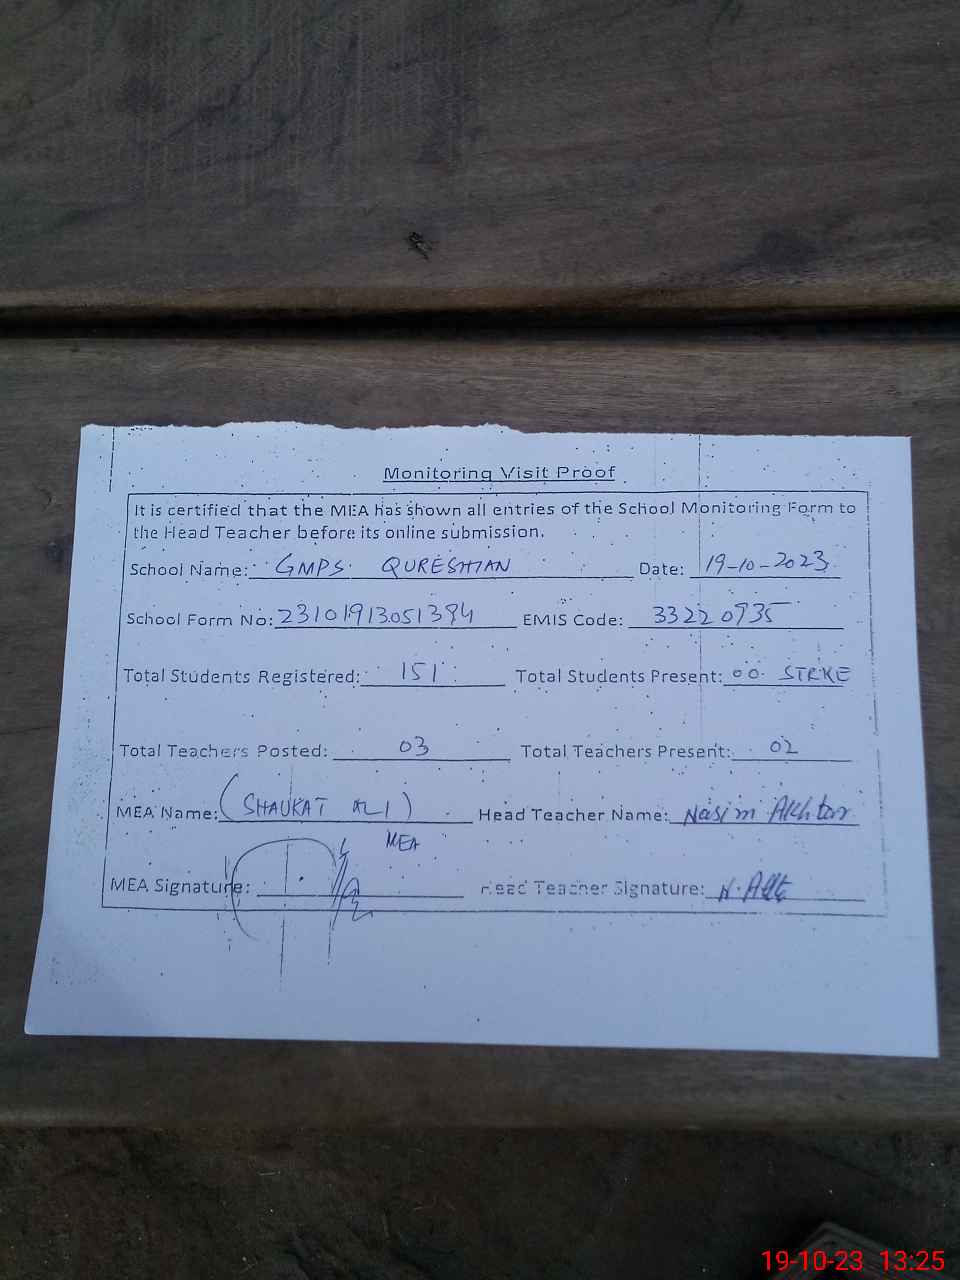 Monitoring Visit Proof
It is certified that the MEA has shown all entries of the School Monitoring Form to
the Head Teacher before its online submission.
School Name: GMPS. QURESHIAN Date: 19-10-2023
School Form No: 23101913051394 EMIS Code: 33220735
Total Students Registered: 151 Total Students Present: 00. STRKE
Total Teachers Posted: 03 Total Teachers Present: 02
MEA Name: (SHAUKAT ALI) Head Teacher Name: Nasim Akhtar
MEA
MEA Signature: Head Teacher Signature:
19-10-23 13:25